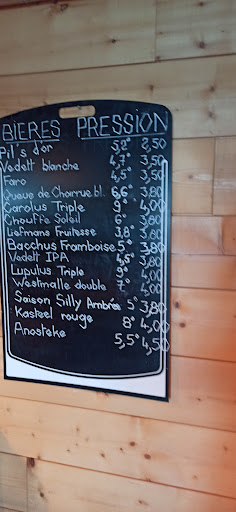 BIERES PRESSION
Pil's d'or 5,2° 2,50
Vedett blanche 4,7° 3,50
Faro 4,5° 3,50
Queue de Charrue bl. 6,6° 3,80
Carolus Triple 9° 4,00
Chouffe Soleil 6° 3,80
Liefmans Fruitesse 3,8° 3,80
Bacchus Framboise 5° 3,80
Vedett IPA 4,5° 3,80
Lupulus Triple 9° 4,00
Westmalle double 7° 4,00
Saison Silly Ambrée 5° 3,80
Kasteel rouge 8° 4,00
Anosteke 5,5° 4,50